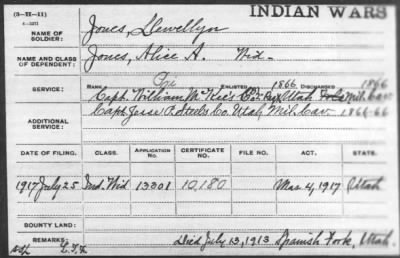 (3-III-11)
INDIAN WARS
NAME OF SOLDIER: Jones, Llewellyn
NAME AND CLASS OF DEPENDENT: Jones, Alice A. Wid-
SERVICE: RANK ENLISTED 1866 DISCHARGED 1866
Capt. William McKee's Co. Utah Mil. Cav
ADDITIONAL SERVICE: Capt. Jesse P. Steeles Co. Utah Mil. Cav 1866-66
DATE OF FILING. CLASS. APPLICATION NO. CERTIFICATE NO. FILE NO. ACT. STATE.
1917 July 25 Ind. Wid 13301 10,180 Mar 4, 1917 Utah
BOUNTY LAND:
REMARKS: Died July 13, 1913 Spanish Fork, Utah.